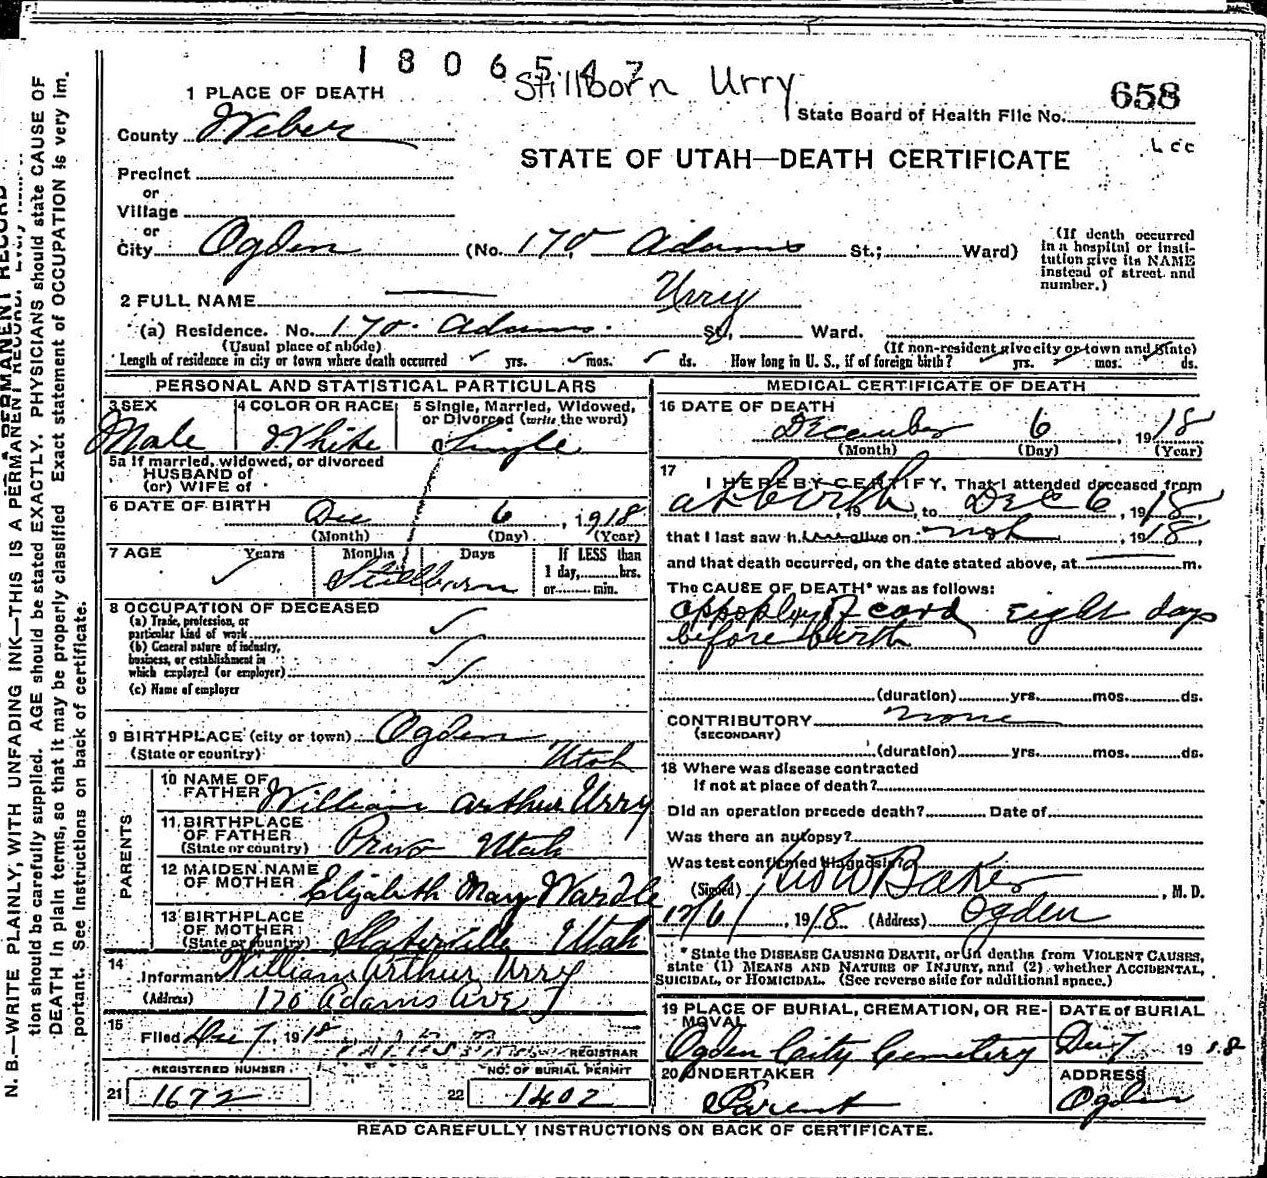 1 8 0 6 5 4 7
Stillborn Urry
658
1 PLACE OF DEATH
State Board of Health File No.
County Weber
STATE OF UTAH—DEATH CERTIFICATE
Precinct
or
Village
or
City Ogden (No. 170 Adams St.; Ward)
(If death occurred in a hospital or insti-
tution give its NAME
instead of street and
number.)
2 FULL NAME Urry
(a) Residence. No. 170 Adams St., Ward.
(Usual place of abode)
(If non-resident give city or town and State)
Length of residence in city or town where death occurred yrs. mos. ds. How long in U. S., if of foreign birth? yrs. mos. ds.
PERSONAL AND STATISTICAL PARTICULARS
3 SEX
Male
4 COLOR OR RACE
White
5 Single, Married, Widowed,
or Divorced (write the word)
Single
5a If married, widowed, or divorced
HUSBAND of
(or) WIFE of
6 DATE OF BIRTH Dec 6, 1918
(Month) (Day) (Year)
7 AGE Years Months Days
Stillborn
If LESS than
1 day, hrs.
or min.
8 OCCUPATION OF DECEASED
(a) Trade, profession, or
particular kind of work
(b) General nature of industry,
business, or establishment in
which employed (or employer)
(c) Name of employer
9 BIRTHPLACE (city or town) Ogden
(State or country) Utah
PARENTS
10 NAME OF
FATHER William Arthur Urry
11 BIRTHPLACE
OF FATHER
(State or country) Provo Utah
12 MAIDEN NAME
OF MOTHER Elizabeth Mary Wardle
13 BIRTHPLACE
OF MOTHER
(State or country) Slaterville Utah
14
Informant William Arthur Urry
(Address) 170 Adams Ave
15
Filed Dec 7, 1918
REGISTRAR
REGISTERED NUMBER
21 1672
NO. OF BURIAL PERMIT
22 1402
MEDICAL CERTIFICATE OF DEATH
16 DATE OF DEATH
December 6, 1918
(Month) (Day) (Year)
17
I HEREBY CERTIFY, That I attended deceased from
at birth, 19 to Dec 6, 1918,
that I last saw h alive on not, 1918,
and that death occurred, on the date stated above, at m.
The CAUSE OF DEATH* was as follows:
cord eight days
before birth
(duration) yrs. mos. ds.
CONTRIBUTORY none
(SECONDARY)
(duration) yrs. mos. ds.
18 Where was disease contracted
If not at place of death?
Did an operation precede death? Date of
Was there an autopsy?
Was test confirmed diagnosis?
(Signed) W Baker, M. D.
12/6, 1918 (Address) Ogden
* State the DISEASE CAUSING DEATH, or in deaths from VIOLENT CAUSES,
state (1) MEANS AND NATURE OF INJURY, and (2) whether ACCIDENTAL,
SUICIDAL, or HOMICIDAL. (See reverse side for additional space.)
19 PLACE OF BURIAL, CREMATION, OR RE-
MOVAL
Ogden City Cemetery
DATE of BURIAL
Dec 7 1918
20 UNDERTAKER
Parent
ADDRESS
Ogden
READ CAREFULLY INSTRUCTIONS ON BACK OF CERTIFICATE.
N. B.—WRITE PLAINLY, WITH UNFADING INK—THIS IS A PERMANENT RECORD.
tion should be carefully supplied. AGE should be stated EXACTLY. PHYSICIANS should state CAUSE OF
DEATH in plain terms, so that it may be properly classified. Exact statement of OCCUPATION is very im-
portant. See instructions on back of certificate.